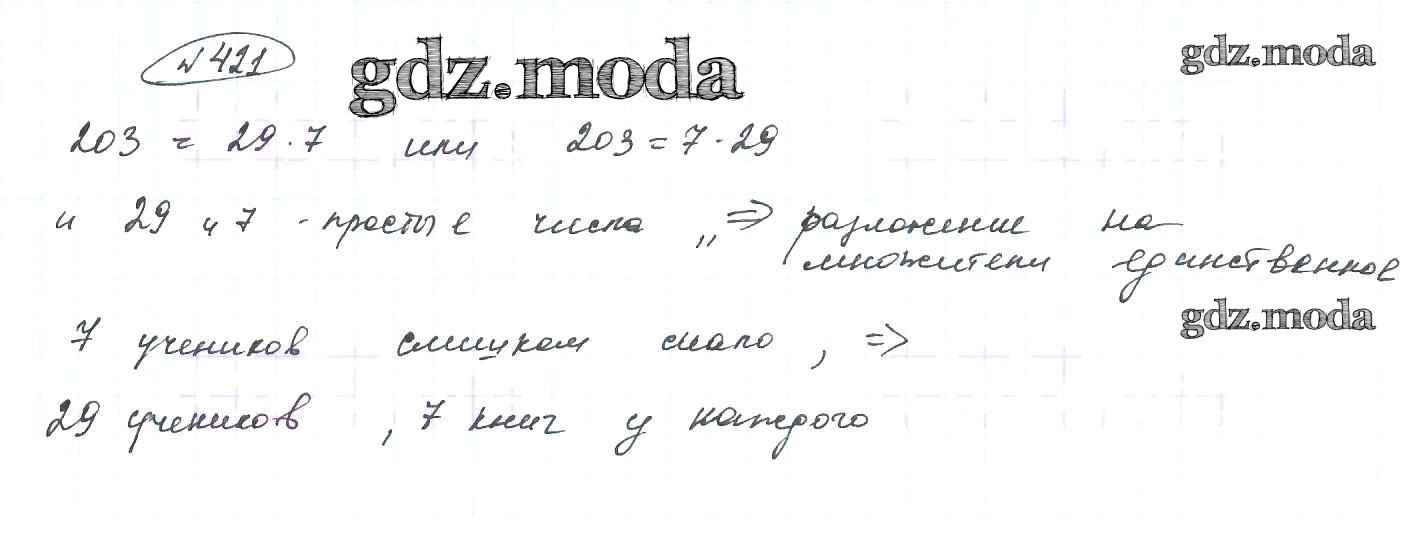 № 421
gdz.moda
gdz.moda
203 = 29 · 7 или 203 = 7 · 29
и 29 и 7 - простые числа ,, => разложение на
множители единственное
gdz.moda
7 учеников слишком мало , =>
29 учеников , 7 книг у каждого